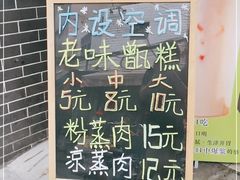 内设空调
老味甑糕
小 中 大
5元 8元 10元
粉蒸肉 15元
凉蒸肉 12元